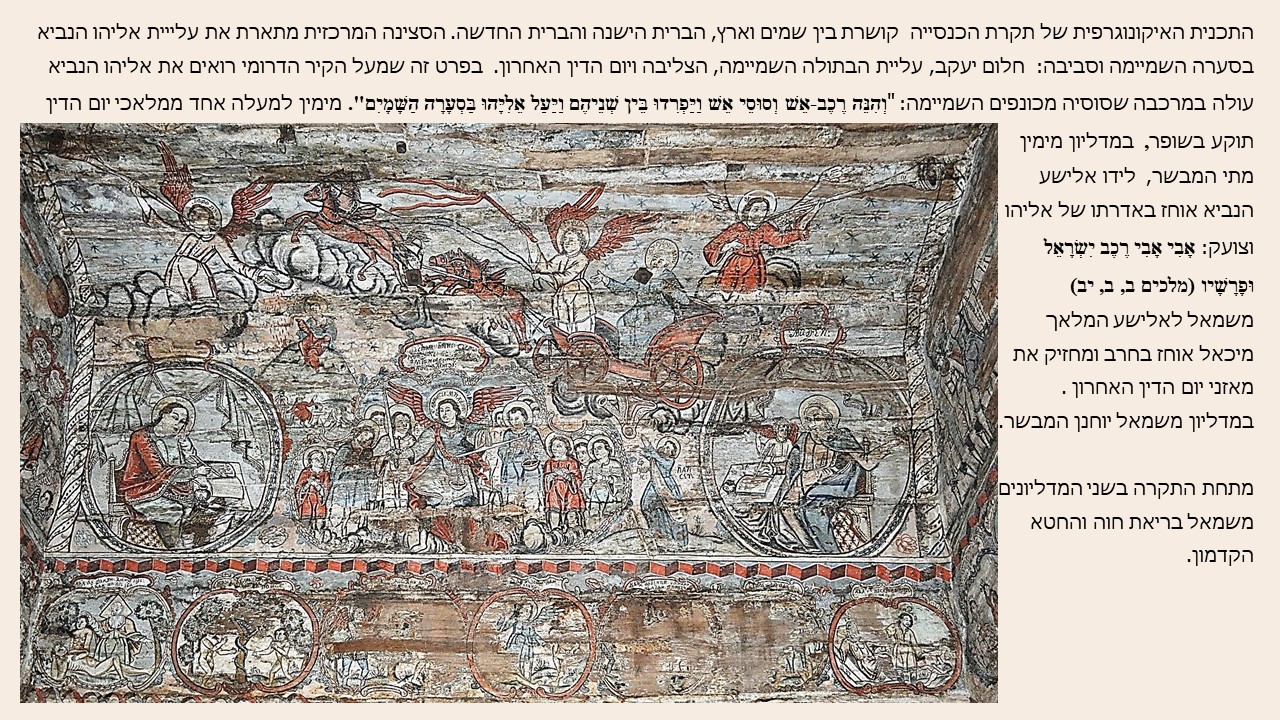 התכנית האיקונוגרפית של תקרת הכנסייה קושרת בין שמים וארץ, הברית הישנה והברית החדשה. הסצינה המרכזית מתארת את עלייית אליהו הנביא
בסערה השמיימה וסביבה: חלום יעקב, עליית הבתולה השמיימה, הצליבה ויום הדין האחרון. בפרט זה שמעל הקיר הדרומי רואים את אליהו הנביא
עולה במרכבה שסוסיה מכונפים השמיימה: "וְהִנֵּה רֶכֶב-אֵשׁ וְסוּסֵי אֵשׁ וַיַּפְרִדוּ בֵּין שְׁנֵיהֶם וַיַּעַל אֵלִיָּהוּ בַּסְעָרָה הַשָּׁמָיִם". מימין למעלה אחד ממלאכי יום הדין
תוקע בשופר, במדליון מימין
מתי המבשר, לידו אלישע
הנביא אוחז באדרתו של אליהו
וצועק: אָבִי אָבִי רֶכֶב יִשְׂרָאֵל
וּפָרָשָׁיו (מלכים ב, ב, יב)
משמאל לאלישע המלאך
מיכאל אוחז בחרב ומחזיק את
מאזני יום הדין האחרון .
במדליון משמאל יוחנן המבשר.
מתחת התקרה בשני המדליונים
משמאל בריאת חוה והחטא
הקדמון.